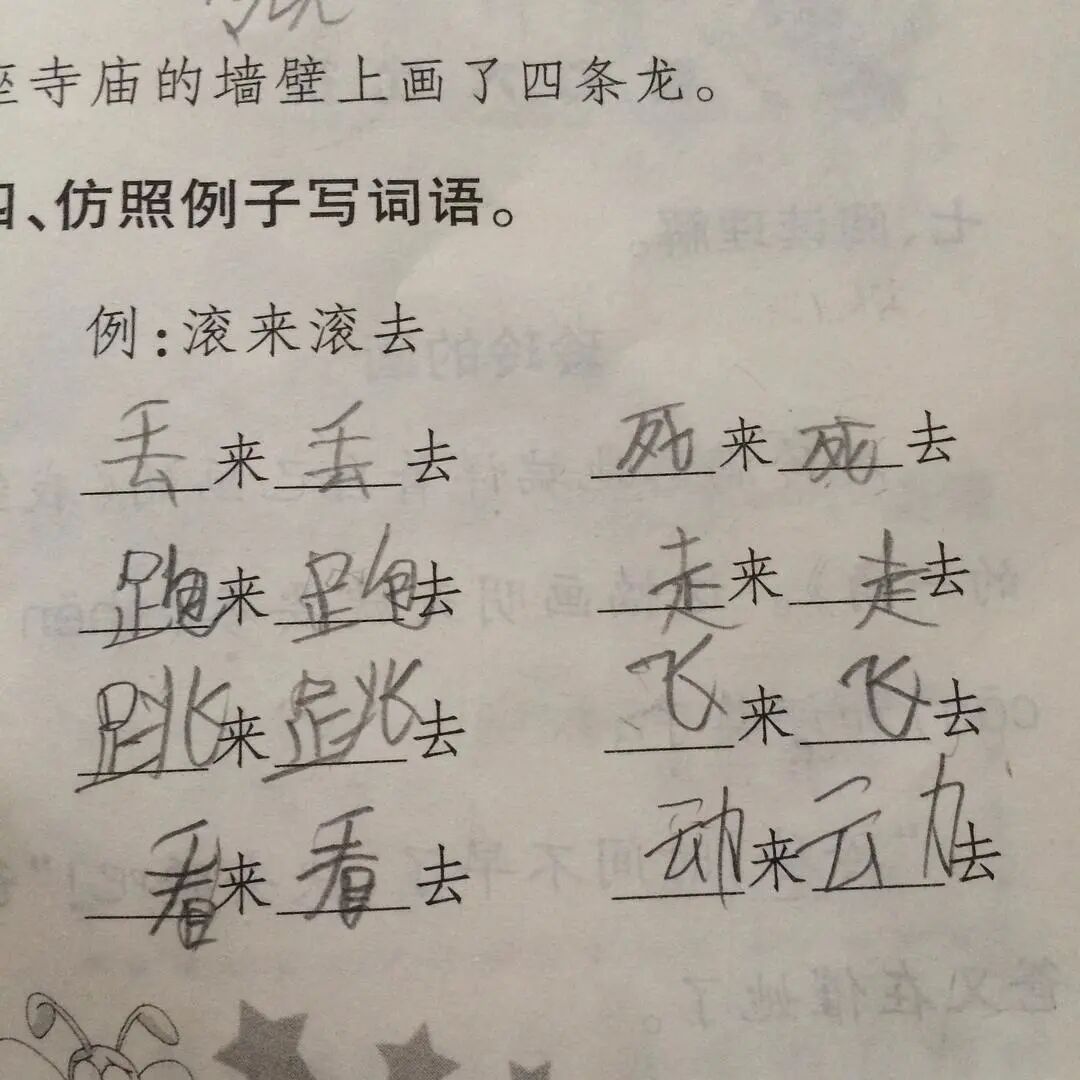 座寺庙的墙壁上画了四条龙。
四、仿照例子写词语。
例:滚来滚去
丢来丢去 死来死去
跑来跑去 走来走去
跳来跳去 飞来飞去
看来看去 动来动去